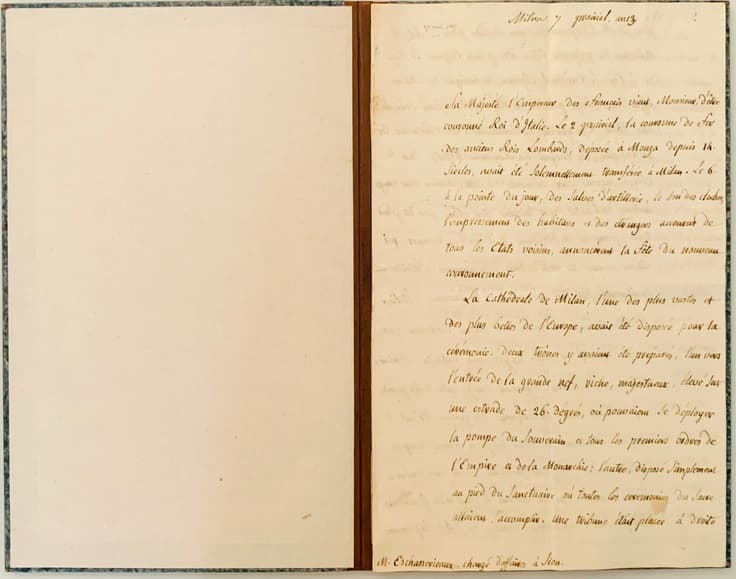 Milan 7 prairial, an 13
Sa Majesté l'Empereur des français vient, Monsieur, d'être
couronné Roi d'Italie. Le 2 prairial, la couronne de Fer
des anciens Rois Lombards, déposée à Monza depuis 14.
Siècles, avait été Solemnellement transférée à Milan. Le 6.
à la pointe du jour, des Salves d'artillerie, le son des cloches,
l'empressement des habitans et des étrangers accourus de
tous les Etats voisins, annoncèrent la fête du nouveau
couronnement.
La Cathédrale de Milan, l'une des plus vastes et
des plus belles de l'Europe, avait été disposée pour la
cérémonie. deux trônes y avaient été préparés, l'un vers
l'entrée de la grande nef, riche, majestueux, élevé Sur
une estrade de 26. degrés, où pouvaient Se déployer
la pompe du Souverain et tous les premiers ordres de
l'Empire et de la Monarchie: l'autre, disposé Simplement
au pied du Sanctuaire où toutes les cérémonies du Sacre
allaient S'accomplir. Une tribune était placée à droite
M. Eschasseriaux, chargé d'affaires à